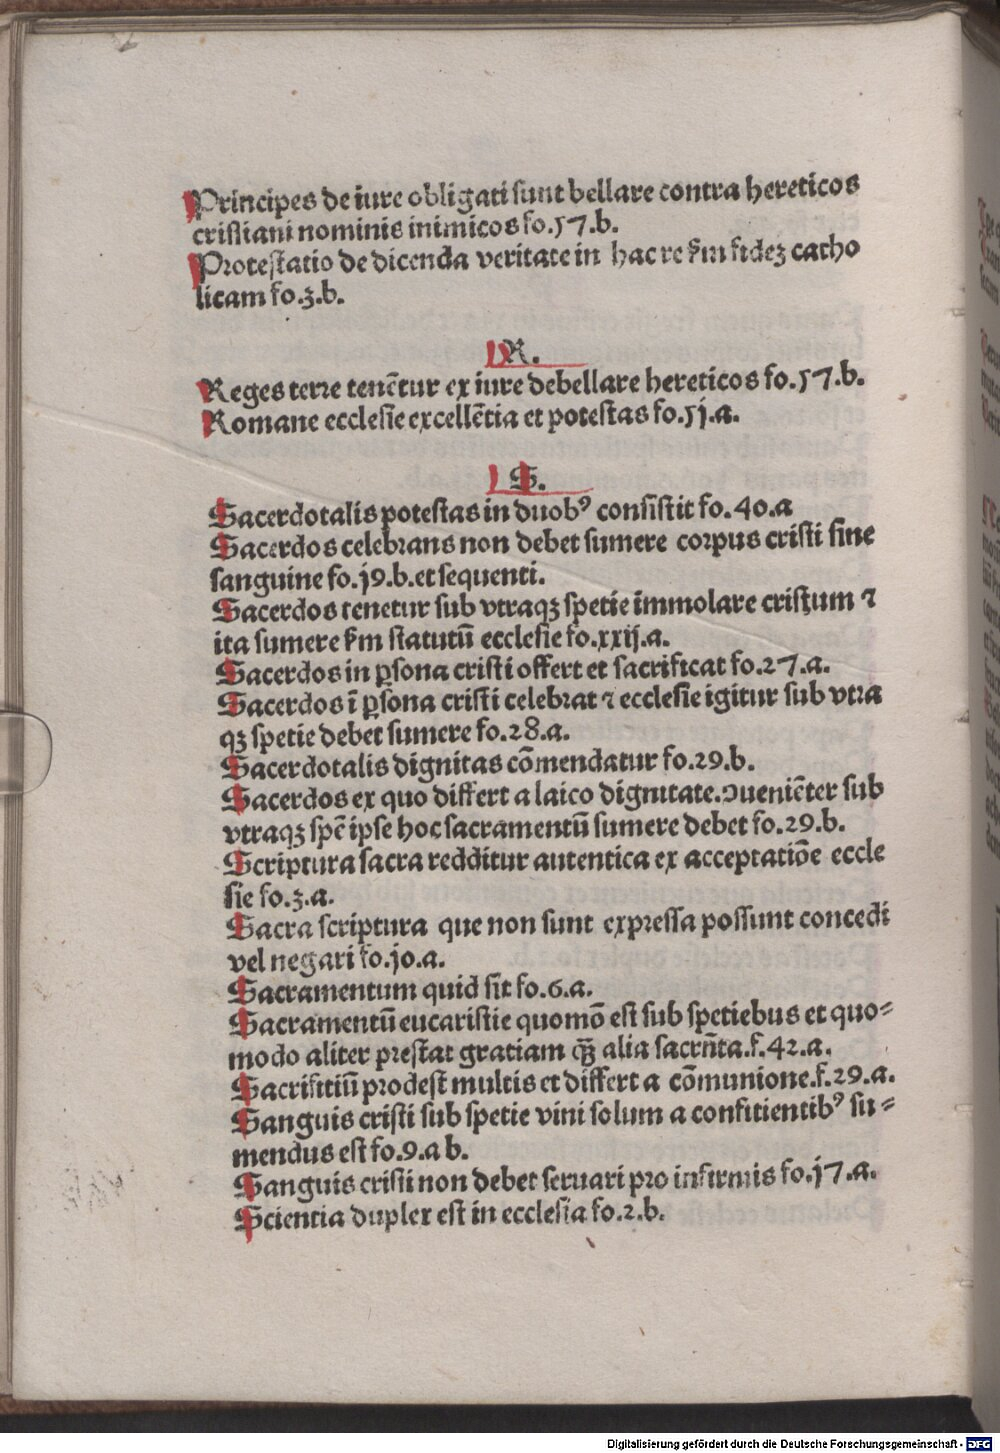 Principes de iure obligati sunt bellare contra hereticos
cristiani nominis inimicos fo.57.b.
Protestatio de dicenda veritate in hac re ẜm fideꝫ catho
licam fo.3.b.
R.
Reges terre tenētur ex iure debellare hereticos fo.57.b.
Romane ecclesie excellētia et potestas fo.5j.a.
S.
Sacerdotalis potestas in duobꝰ consistit fo.40.a
Sacerdos celebrans non debet sumere corpus cristi sine
sanguine fo.j9.b.et sequenti.
Sacerdos tenetur sub vtraqꝫ spetie immolare cristum ⁊
ita sumere ẜm statutū ecclesie fo.xxij.a.
Sacerdos in ꝑsona cristi offert et sacrificat fo.27.a.
Sacerdos ī ꝑsona cristi celebrat ⁊ ecclesie igitur sub vtra
qꝫ spetie debet sumere fo.28.a.
Sacerdotalis dignitas cōmendatur fo.29.b.
Sacerdos ex quo differt a laico dignitate.ↄueniēter sub
vtraqꝫ spē ipse hoc sacramentū sumere debet fo.29.b.
Scriptura sacra redditur autentica ex acceptatiōe eccle
sie fo.3.a.
Sacra scriptura que non sunt expressa possunt concedi
vel negari fo.j0.a.
Sacramentum quid sit fo.6.a.
Sacramentū eucaristie quomō est sub spetiebus et quo-
modo aliter prestat gratiam ꝙ̄ꝫ alia sacrn̄ta.f.42.a.
Sacrifitiū prodest multis et differt a cōmunione.f.29.a.
Sanguis cristi sub spetie vini solum a confitientibꝰ su-
mendus est fo.9.a b.
Sanguis cristi non debet seruari pro infirmis fo.j7.a.
Scientia duplex est in ecclesia fo.2.b.
Digitalisierung gefördert durch die Deutsche Forschungsgemeinschaft - DFG